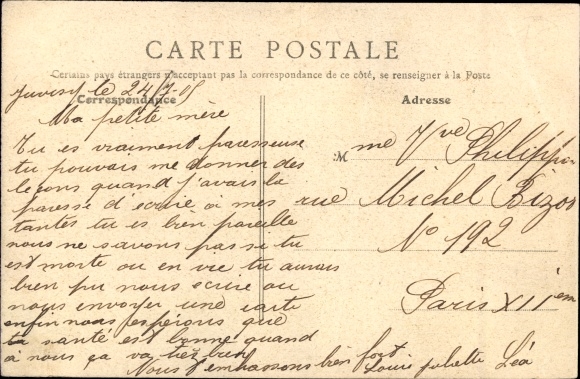 CARTE POSTALE
Certains pays étrangers n'acceptant pas la correspondance de ce côté, se renseigner à la Poste
Correspondance
Juvisy le 24/7-05
Ma petite mère
Tu es vraiment paresseuse
tu pouvais me donner des
leçons quand j'avais la
paresse d'écrire à mes
tantes tu es bien pareille
nous ne savons pas si tu
est morte ou en vie tu aurais
bien pu nous écrire ou
nous envoyer une carte
enfin nous espérons que
ta santé est bonne quand
à nous ça va très bien
Nous t'embrassons bien fort
Louis Juliette Léa
Adresse
Mme Vve Philippon
rue Michel Bizot
No 192
Paris XIIem